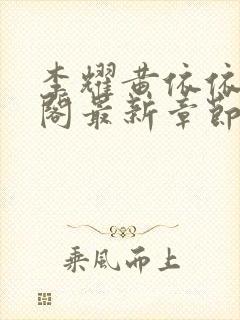 李耀黄依依
阁最新章节
乘风而上